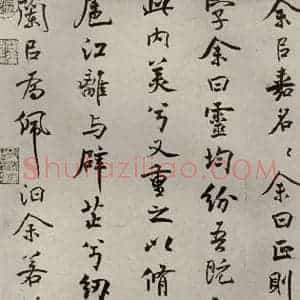 余㠯嘉名〻余曰正則
字余曰靈均紛吾既
此内美兮又重之以脩
扈江離与辟芷兮紉
蘭㠯為佩汩余若
Shufaziliao.com